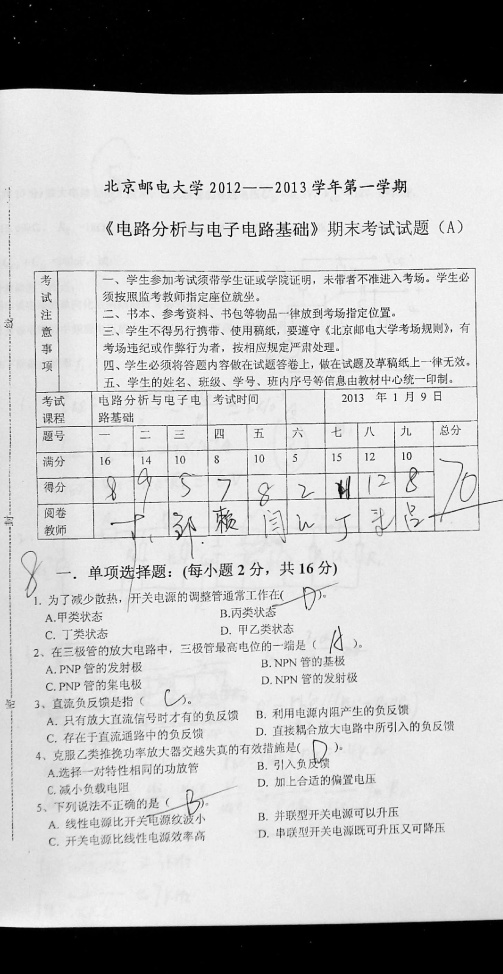 北京邮电大学 2012——2013 学年第一学期
《电路分析与电子电路基础》期末考试试题（A）
考试注意事项
一、学生参加考试须带学生证或学院证明，未带者不准进入考场。学生必
须按照监考教师指定座位就坐。
二、书本、参考资料、书包等物品一律放到考场指定位置。
三、学生不得另行携带、使用稿纸，要遵守《北京邮电大学考场规则》，有
考场违纪或作弊行为者，按相应规定严肃处理。
四、学生必须将答题内容做在试题答卷上，做在试题及草稿纸上一律无效。
五、学生的姓名、班级、学号、班内序号等信息由教材中心统一印制。
考试课程 电路分析与电子电路基础 考试时间 2013 年 1 月 9 日
题号 一 二 三 四 五 六 七 八 九 总分
满分 16 14 10 8 10 5 15 12 10
得分 8 9 5 7 8 2 11 12 8 70
阅卷教师 郭 赖 闫 丁 吕
8 一．单项选择题：(每小题 2 分，共 16 分)
1. 为了减少散热，开关电源的调整管通常工作在( D )。
A.甲类状态 B.丙类状态
C. 丁类状态 D. 甲乙类状态
2、在三极管的放大电路中，三极管最高电位的一端是（ A ）。
A. PNP 管的发射极 B. NPN 管的基极
C. PNP 管的集电极 D. NPN 管的发射极
3、直流负反馈是指（ C ）。
A. 只有放大直流信号时才有的负反馈 B. 利用电源内阻产生的负反馈
C. 存在于直流通路中的负反馈 D. 直接耦合放大电路中所引入的负反馈
4、克服乙类推挽功率放大器交越失真的有效措施是( D )。
A.选择一对特性相同的功放管 B. 引入负反馈
C. 减小负载电阻 D. 加上合适的偏置电压
5、下列说法不正确的是（ B ）。
A. 线性电源比开关电源纹波小 B. 并联型开关电源可以升压
C. 开关电源比线性电源效率高 D. 串联型开关电源既可升压又可降压